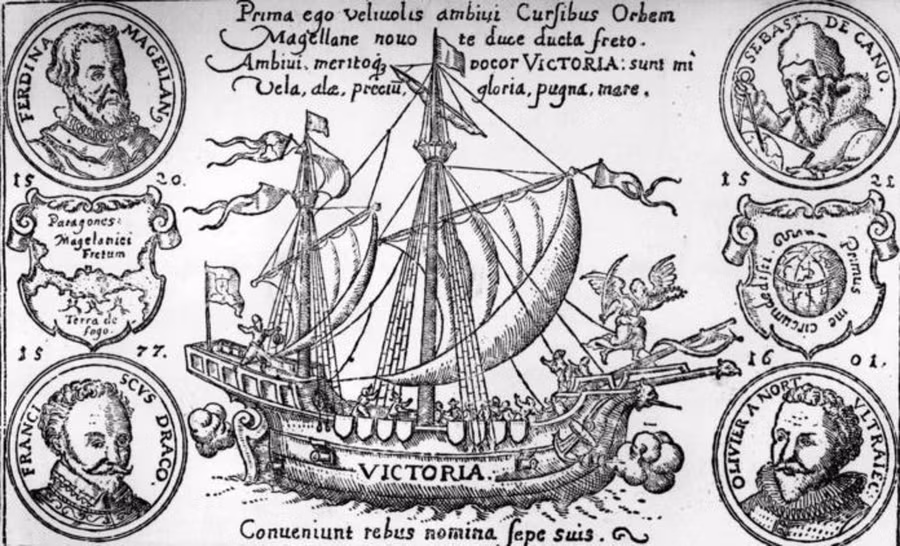 Prima ego velivolis ambivi Cursibus Orbem
Magellane novo te duce ducta freto.
Ambivi, meritoq₃ vocor VICTORIA: sunt mi
Vela, alæ, preciu, gloria, pugna, mare.
FERDINA MAGELLANꝰ.
15 20.
SEBAST. DE CANO.
15 21
Paragones:
Magelanici
Fretum
Terra de
fogo.
Primus me circumdedisti
15 77.
FRANCI SCVS DRACO.
16 01.
OLIVIER A NORT VLTRAIEC:
VICTORIA.
Conveniunt rebus nomina sepe suis.